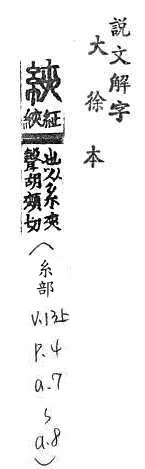 說文解字
大徐本
綊
䋊
綊
也从糸夾
聲胡頰切
(糸部
V.13上
P.4
a.7
~
a.8)